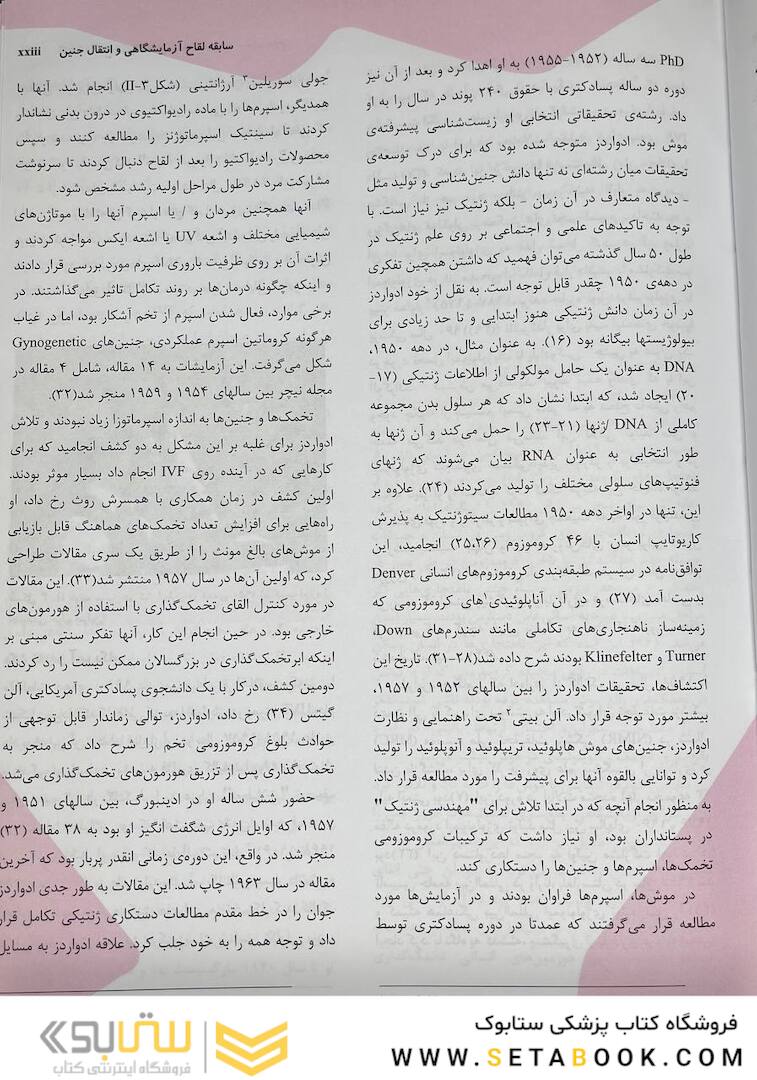 سابقه لقاح آزمایشگاهی و انتقال جنین xxiii
PhD سه ساله (۱۹۵۲-۱۹۵۵) به او اهدا کرد و بعد از آن نیز
دوره دو ساله پسادکتری با حقوق ۲۴۰ پوند در سال را به او
داد. رشته‌ی تحقیقاتی انتخابی او زیست‌شناسی پیشرفته‌ی
موش بود. ادواردز متوجه شده بود که برای درک توسعه‌ی
تحقیقات میان رشته‌ای نه تنها دانش جنین‌شناسی و تولید مثل
- دیدگاه متعارف در آن زمان - بلکه ژنتیک نیز نیاز است. با
توجه به تاکیدهای علمی و اجتماعی بر روی علم ژنتیک در
طول ۵۰ سال گذشته می‌توان فهمید که داشتن همچین تفکری
در دهه‌ی ۱۹۵۰ چقدر قابل توجه است. به نقل از خود ادواردز
در آن زمان دانش ژنتیکی هنوز ابتدایی و تا حد زیادی برای
بیولوژیستها بیگانه بود (۱۶). به عنوان مثال، در دهه ۱۹۵۰،
DNA به عنوان یک حامل مولکولی از اطلاعات ژنتیکی (۱۷-
۲۰) ایجاد شد، که ابتدا نشان داد که هر سلول بدن مجموعه
کاملی از DNA /ژنها (۲۱-۲۳) را حمل می‌کند و آن ژنها به
طور انتخابی به عنوان RNA بیان می‌شوند که ژنهای
فنوتیپ‌های سلولی مختلف را تولید می‌کردند (۲۴). علاوه بر
این، تنها در اواخر دهه ۱۹۵۰ مطالعات سیتوژنتیک به پذیرش
کاریوتایپ انسان با ۴۶ کروموزوم (۲۵،۲۶) انجامید، این
توافق‌نامه در سیستم طبقه‌بندی کروموزوم‌های انسانی Denver
بدست آمد (۲۷) و در آن آناپلوئیدی۱های کروموزومی که
زمینه‌ساز ناهنجاری‌های تکاملی مانند سندرم‌های Down،
Turner و Klinefelter بودند شرح داده شد(۲۸-۳۱). تاریخ این
اکتشاف‌ها، تحقیقات ادواردز را بین سالهای ۱۹۵۲ و ۱۹۵۷،
بیشتر مورد توجه قرار داد. آلن بیتی۲ تحت راهنمایی و نظارت
ادواردز، جنین‌های موش هاپلوئید، تریپلوئید و آنوپلوئید را تولید
کرد و توانایی بالقوه آنها برای پیشرفت را مورد مطالعه قرار داد.
به منظور انجام آنچه که در ابتدا تلاش برای "مهندسی ژنتیک"
در پستانداران بود، او نیاز داشت که ترکیبات کروموزومی
تخمک‌ها، اسپرم‌ها و جنین‌ها را دستکاری کند.
در موش‌ها، اسپرم‌ها فراوان بودند و در آزمایش‌ها مورد
مطالعه قرار می‌گرفتند که عمدتا در دوره پسادکتری توسط
جولی سوریلین۳ آرژانتینی (شکل۳-II) انجام شد. آنها با
همدیگر، اسپرم‌ها را با ماده رادیواکتیوی در درون بدنی نشاندار
کردند تا سینتیک اسپرماتوژنز را مطالعه کنند و سپس
محصولات رادیواکتیو را بعد از لقاح دنبال کردند تا سرنوشت
مشارکت مرد در طول مراحل اولیه رشد مشخص شود.
آنها همچنین مردان و / یا اسپرم آنها را با موتاژن‌های
شیمیایی مختلف و اشعه UV یا اشعه ایکس مواجه کردند و
اثرات آن بر روی ظرفیت باروری اسپرم مورد بررسی قرار دادند
و اینکه چگونه درمان‌ها بر روند تکامل تاثیر می‌گذاشتند. در
برخی موارد، فعال شدن اسپرم از تخم آشکار بود، اما در غیاب
هرگونه کروماتین اسپرم عملکردی، جنین‌های Gynogenetic
شکل می‌گرفت. این آزمایشات به ۱۴ مقاله، شامل ۴ مقاله در
مجله نیچر بین سالهای ۱۹۵۴ و ۱۹۵۹ منجر شد(۳۲).
تخمک‌ها و جنین‌ها به اندازه اسپرماتوزا زیاد نبودند و تلاش
ادواردز برای غلبه بر این مشکل به دو کشف انجامید که برای
کارهایی که در آینده روی IVF انجام داد بسیار موثر بودند.
اولین کشف در زمان همکاری با همسرش روث رخ داد، او
راه‌هایی برای افزایش تعداد تخمک‌های هماهنگ قابل بازیابی
از موش‌های بالغ مونث را از طریق یک سری مقالات طراحی
کرد، که اولین آن‌ها در سال ۱۹۵۷ منتشر شد(۳۳). این مقالات
در مورد کنترل القای تخمک‌گذاری با استفاده از هورمون‌های
خارجی بود. در حین انجام این کار، آنها تفکر سنتی مبنی بر
اینکه ابرتخمک‌گذاری در بزرگسالان ممکن نیست را رد کردند.
دومین کشف، درکار با یک دانشجوی پسادکتری آمریکایی، آلن
گیتس (۳۴) رخ داد، ادواردز، توالی زماندار قابل توجهی از
حوادث بلوغ کروموزومی تخم را شرح داد که منجر به
تخمک‌گذاری پس از تزریق هورمون‌های تخمک‌گذاری می‌شد.
حضور شش ساله او در ادینبورگ، بین سالهای ۱۹۵۱ و
۱۹۵۷، که اوایل انرژی شگفت انگیز او بود به ۳۸ مقاله (۳۲)
منجر شد. در واقع، این دوره‌ی زمانی انقدر پربار بود که آخرین
مقاله در سال ۱۹۶۳ چاپ شد. این مقالات به طور جدی ادواردز
جوان را در خط مقدم مطالعات دستکاری ژنتیکی تکامل قرار
داد و توجه همه را به خود جلب کرد. علاقه ادواردز به مسایل
فروشگاه کتاب پزشکی ستابوک
WWW.SETABOOK.COM
ستابوک
فروشگاه اینترنتی کتاب